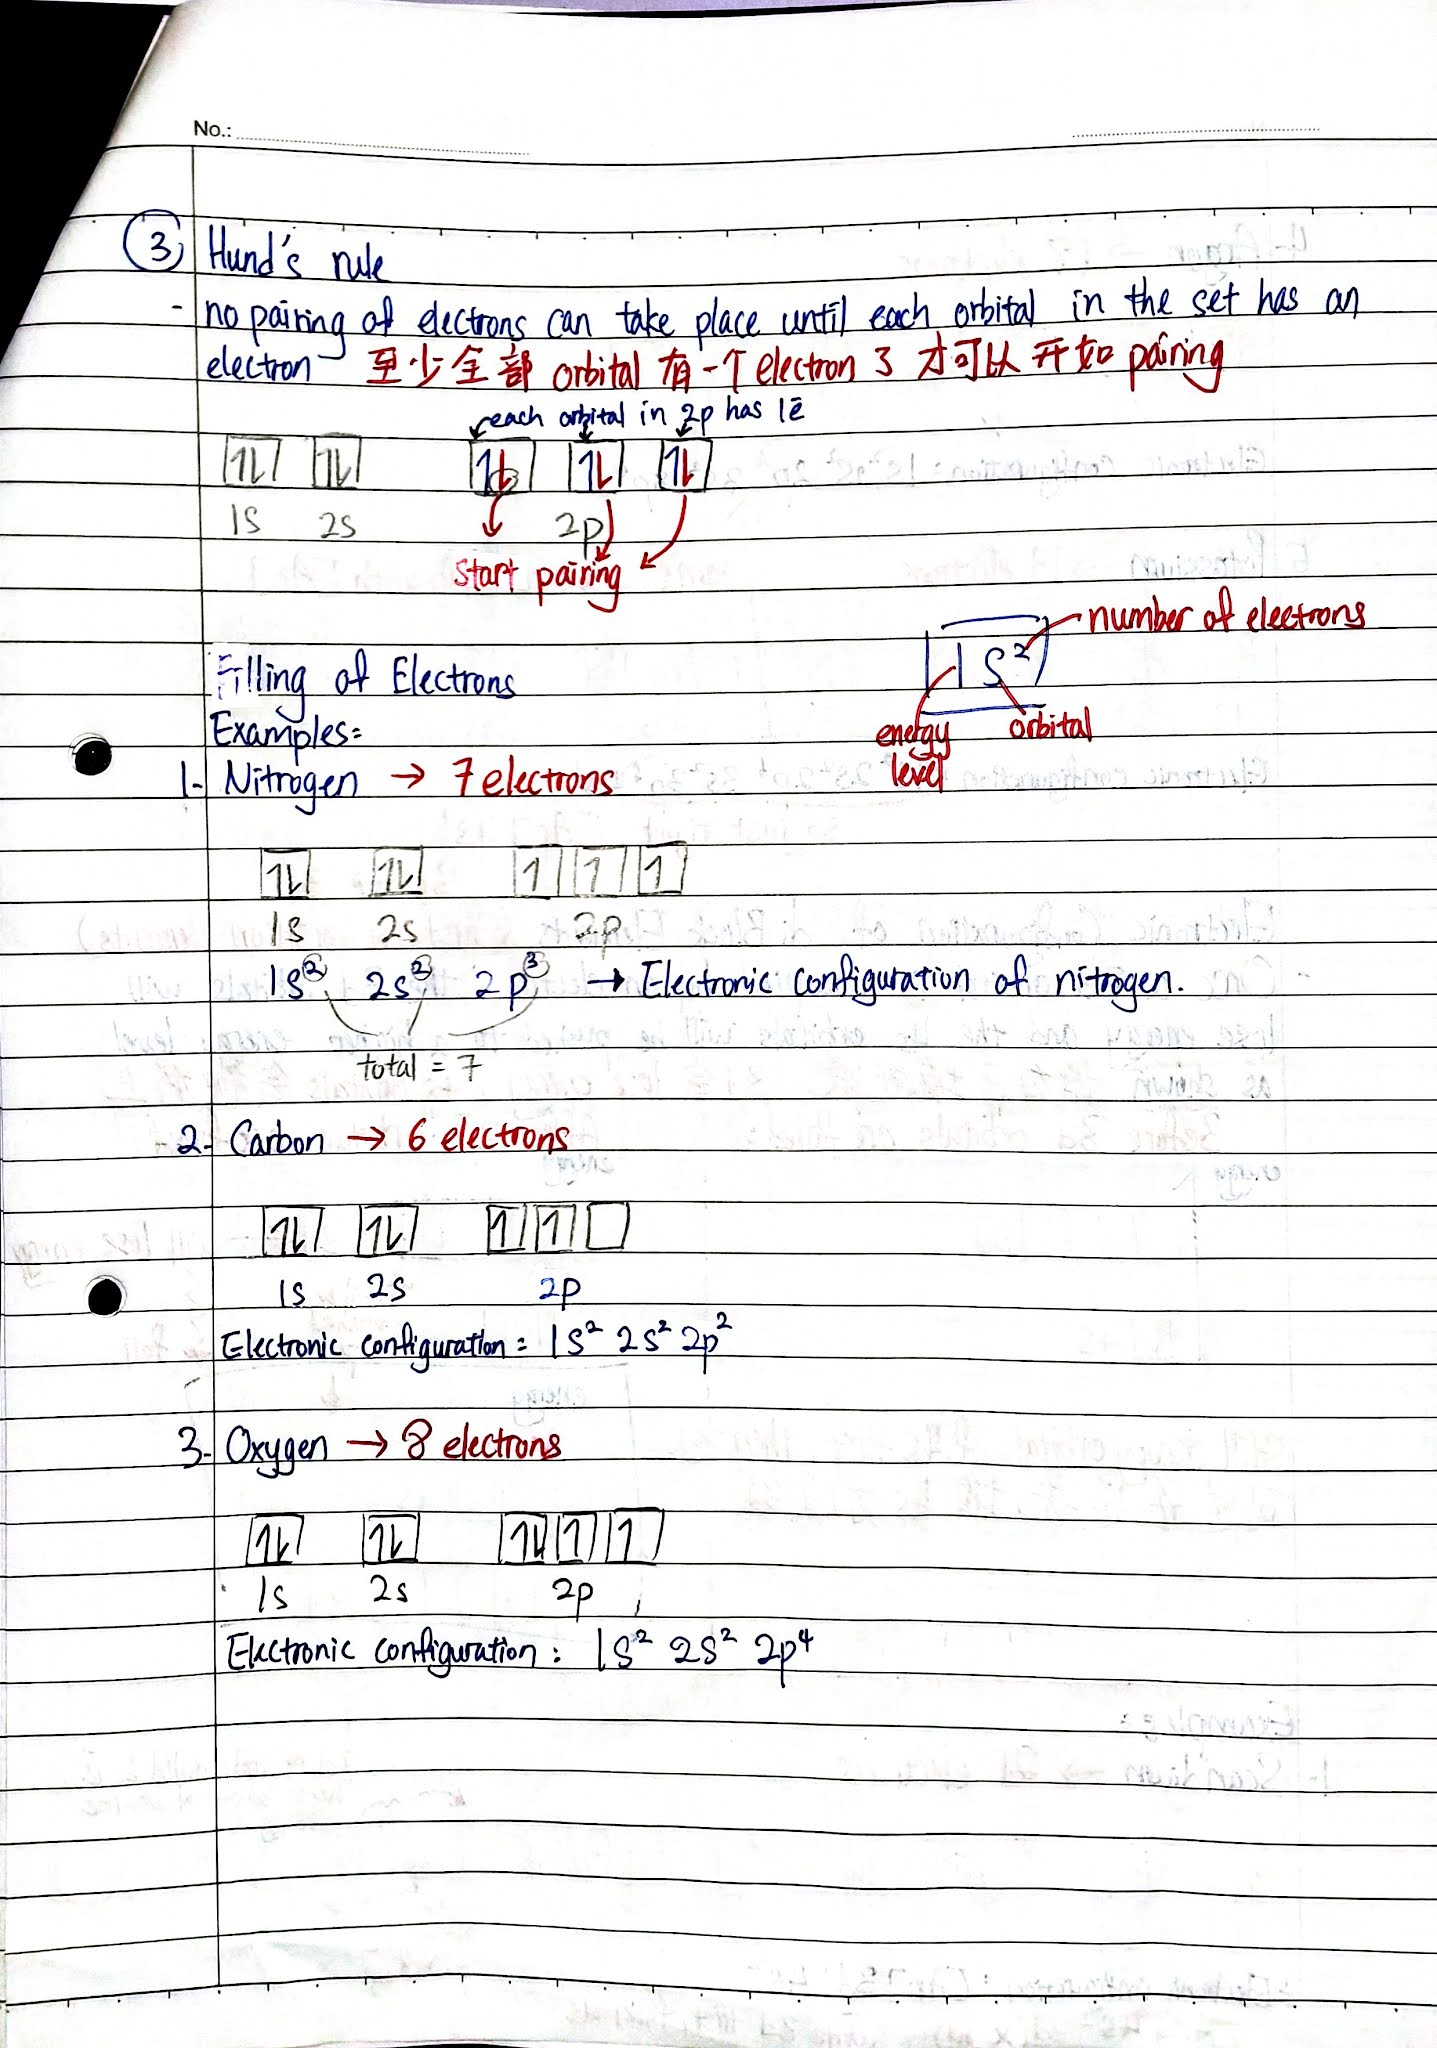 No.:
③ Hund's rule
- no pairing of electrons can take place until each orbital in the set has an
electron 至少全部 orbital 有一个 electron 了 才可以开始 pairing
each orbital in 2p has 1ē
1s 2s 2p
start pairing
1s² number of electrons
energy level orbital
Filling of Electrons
Examples:
1- Nitrogen → 7 electrons
1s 2s 2p
1s² 2s² 2p³ → Electronic configuration of nitrogen.
total = 7
2- Carbon → 6 electrons
1s 2s 2p
Electronic configuration = 1s² 2s² 2p²
3- Oxygen → 8 electrons
1s 2s 2p
Electronic configuration : 1s² 2s² 2p⁴